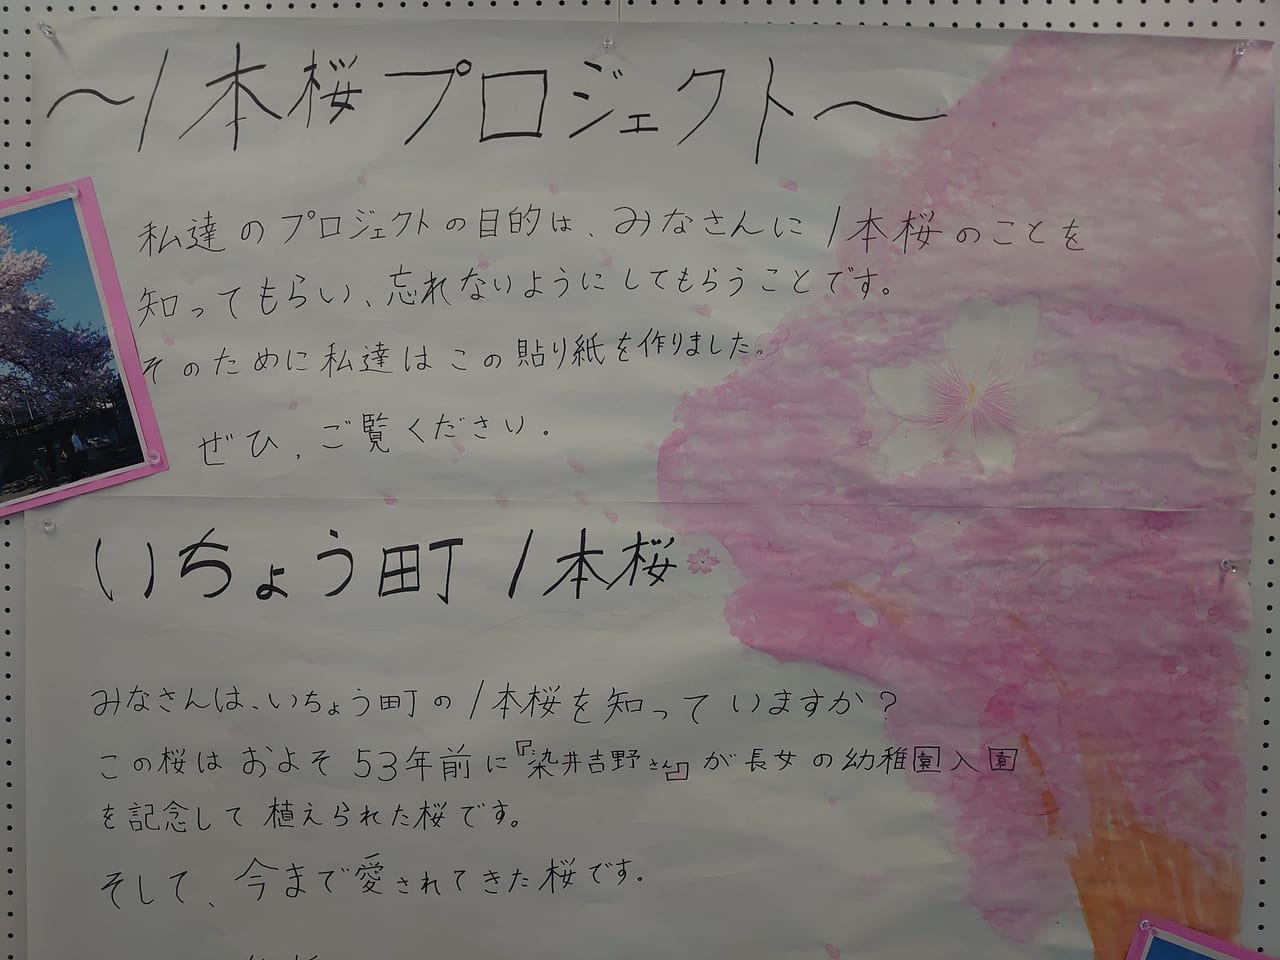 ～1本桜プロジェクト～
私達のプロジェクトの目的は、みなさんに1本桜のことを
知ってもらい、忘れないようにしてもらうことです。
そのために私達はこの貼り紙を作りました。
ぜひ、ご覧ください.
いちょう町1本桜
みなさんは、いちょう町の1本桜を知っていますか?
この桜はおよそ53年前に『染井吉野さん』が長女の幼稚園入園
を記念して植えられた桜です。
そして、今まで愛されてきた桜です。